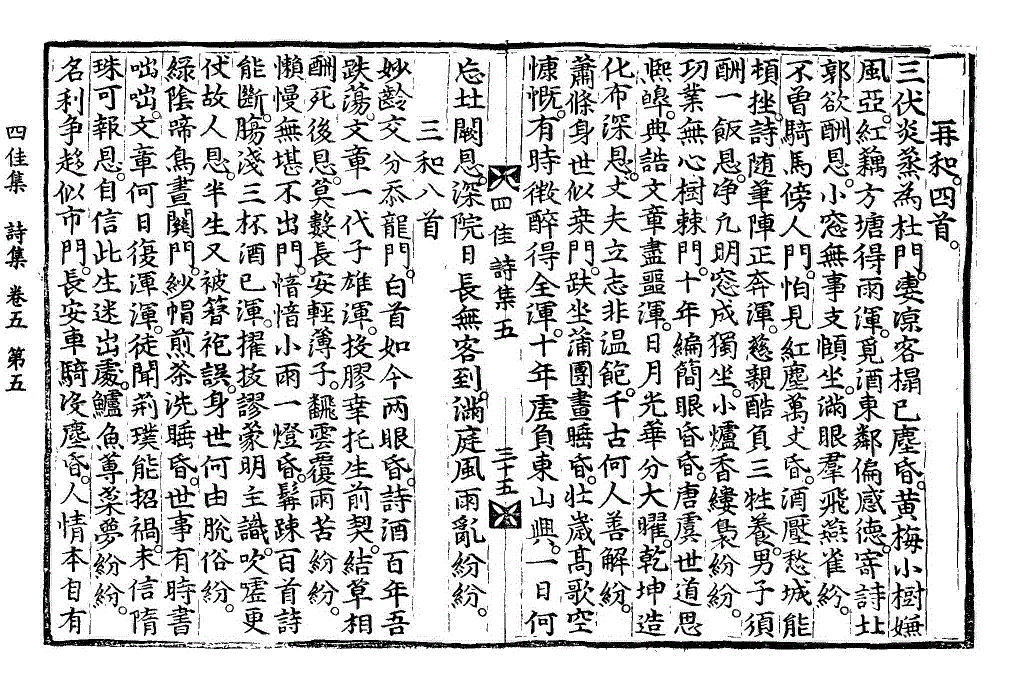 再和。四首。
三伏炎蒸為杜門。凄凉客榻已塵昏。黃梅小樹嫵
風亞。紅藕方塘得雨渾。覓酒東鄰偏感德。寄詩北
郭欲酬恩。小窓無事支頥坐。滿眼羣飛燕雀紛。
不曾騎馬傍人門。怕見紅塵萬丈昏。酒壓愁城能
頓挫。詩随筆陣正奔渾。慈親酷負三牲養。男子須
酬一飯恩。净几明窓成獨坐。小爐香縷裊紛紛。
功業無心樹棘門。十年編簡眼昏昏。唐虞世道思
熈皥。典誥文章盡噩渾。日月光華分大曜。乾坤造
化布深恩。丈夫立志非温飽。千古何人善解紛。
蕭條身世似桒門。趺坐蒲團晝睡昏。壯歲高歌空
慷慨。有時徵醉得全渾。十年虛負東山興、一日何
四佳詩集五
三十五
忘北闕恩。深院日長無客到。滿庭風雨亂紛紛。
三和八首
妙齡交分忝龍門。白首如今兩眼昏。詩酒百年吾
跌蕩。文章一代子雄渾。投膠幸托生前契。結草相
酬死後恩。莫數長安輕薄子。飜雲覆雨苦紛紛。
懶慢無堪不出門。愔愔小雨一燈昏。鬅疎百首詩
能斷。膓淺三杯酒已渾。擢抜謬蒙明主識。吹噓更
仗故人恩。半生又被簪袍誤。身世何由脫俗紛。
綠陰啼鳥晝闃門。紗帽煎茶洗睡昏。世事有時書
咄咄。文章何日復渾渾。徒聞荊璞能招禍。未信隋
珠可報恩。自信此生迷出處。鱸魚蓴菜夢紛紛。
名利爭趍似市門。長安車騎沒塵昏。人情本自有
四佳集 詩集 卷五 第五